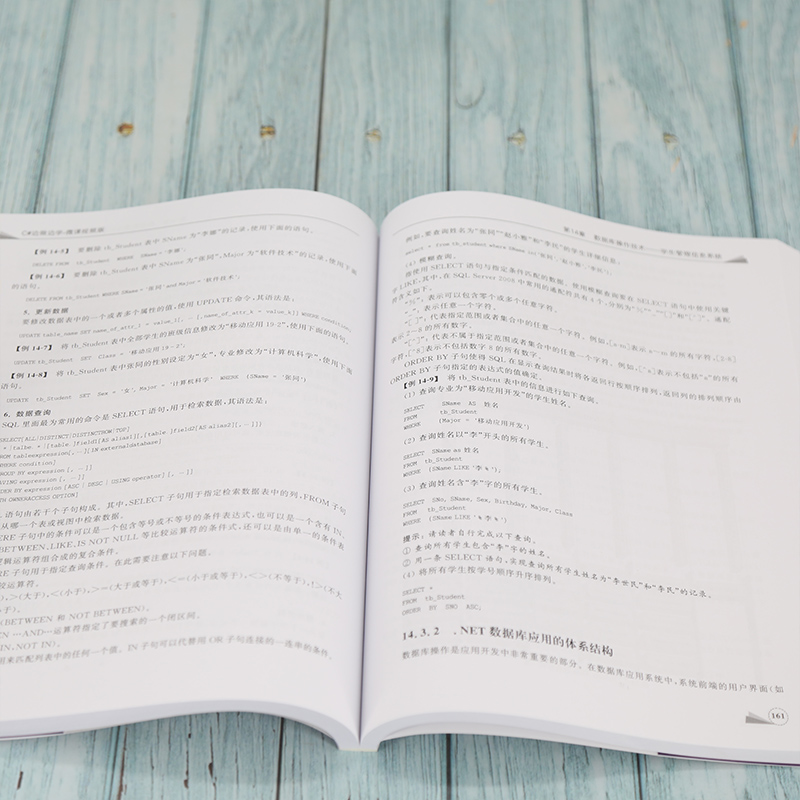 C#边做边学-微课视频版
【例 14-5】 要删除 tb_Student 表中 SName 为“李娜”的记录,使用下面的语句。
DELETE FROM tb_Student WHERE SName = '李娜';
【例 14-6】 要删除 tb_Student 表中 SName 为“张同”,Major 为“软件技术”的记录,使用下面
的语句。
DELETE FROM tb_Student WHERE SName = '张同' and Major = '软件技术';
5. 更新数据
要修改数据表中的一个或者多个属性的值,使用 UPDATE 命令,其语法是:
UPDATE table_name SET name_of_attr_1 = value_1[, …[,name_of_attr_k = value_k]] WHERE condition;
【例 14-7】 将 tb_Student 表中全部学生的班级信息修改为“移动应用 19-2”,使用下面的语句。
UPDATE tb_Student SET Class = '移动应用 19-2';
【例 14-8】 将 tb_Student 表中张同的性别设定为“女”,专业修改为“计算机科学”,使用下面
语句。
UPDATE tb_Student SET Sex = '女', Major = '计算机科学' WHERE (SName = '张同')
6. 数据查询
SQL 里面最为常用的命令是 SELECT 语句,用于检索数据,其语法是:
SELECT[ALL|DISTINCT|DISTINCTROW|TOP]
{ * |talbe. * |[table.]field1[AS alias1][,[table.]field2[AS alias2][,…]]}
FROM tableexpression[,…][IN externaldatabase]
WHERE condition]
GROUP BY expression [, …]]
HAVING expression [, …]]
ORDER BY expression [ASC | DESC | USING operator] [, …]]
WITH OWNERACCESS OPTION]
语句由若干个子句构成。其中,SELECT 子句用于指定检索数据表中的列,FROM 子句
从哪一个表或视图中检索数据。
RE 子句中的条件可以是一个包含等号或不等号的条件表达式,也可以是一个含有 IN、
BETWEEN、LIKE、IS NOT NULL 等比较运算符的条件式,还可以是由单一的条件表
逻辑运算符组合成的复合条件。
RE 子句用于指定查询条件。在此需要注意以下问题。
较运算符。
),>(大于),<(小于),>=(大于或等于),<=(小于或等于),<>(不等于),!>(不大
于)。
(BETWEEN 和 NOT BETWEEN)。
EN …AND—运算符指定了要搜索的一个闭区间。
IN、NOT IN)。
用来匹配列表中的任何一个值。IN 子句可以代替用 OR 子句连接的一连串的条件。
第14章 数据库操作技术——学生管理信息系统
例如,要查询姓名为“张同”“赵小燕”和“李民”的学生详细信息:
select * from tb_student where SName in('张同','赵小燕','李民');
(4) 模糊查询。
指使用 SELECT 语句与指定条件匹配的数据。使用模糊查询要在 SELECT 语句中使用关键
LIKE,其中,在 SQL Server 2008 中常用的通配符共有 4 个,分别为“%”“_”“[]”和“[^]”,通配
符含义如下:
“%”,表示可以包含零个或多个任意字符。
“_”,表示任意一个字符。
“[ ]”:代表指定范围或者集合中的任意一个字符。例如,[s-m]表示 s~m 的所有字符,[2-8]
表示 2~8 的所有数字。
“[^]”:代表不属于指定范围或者集合中的任意一个字符。例如,[^a]表示不包括“a”的所有
字符,[^8]表示不包括数字 8 的所有数字。
ORDER BY 子句使得 SQL 在显示查询结果时将各返回行按顺序排列,返回列的排列顺序由
ORDER BY 子句指定的表达式的值确定。
【例 14-9】 将 tb_Student 表中的信息进行如下查询。
(1) 查询专业为“移动应用开发”的学生姓名。
SELECT SName AS 姓名
FROM tb_Student
WHERE (Major = '移动应用开发')
(2) 查询姓名以“李”开头的所有学生。
SELECT SName as 姓名
FROM tb_Student
WHERE (SName LIKE '李%');
(3) 查询姓名含“李”字的所有学生。
SELECT SNo, SName, Sex, Birthday, Major, Class
FROM tb_Student
WHERE (SName LIKE '%李%')
提示:请读者自行完成以下查询。
① 查询所有学生包含“李”字的姓名。
② 用一条 SELECT 语句,实现查询所有学生姓名为“李世民”和“李民”的记录。
(4) 将所有学生按学号顺序升序排列。
SELECT *
FROM tb_Student
ORDER BY SNO ASC;
14.3.2 .NET 数据库应用的体系结构
数据库操作是应用开发中非常重要的部分。在数据库应用系统中,系统前端的用户界面(如
161